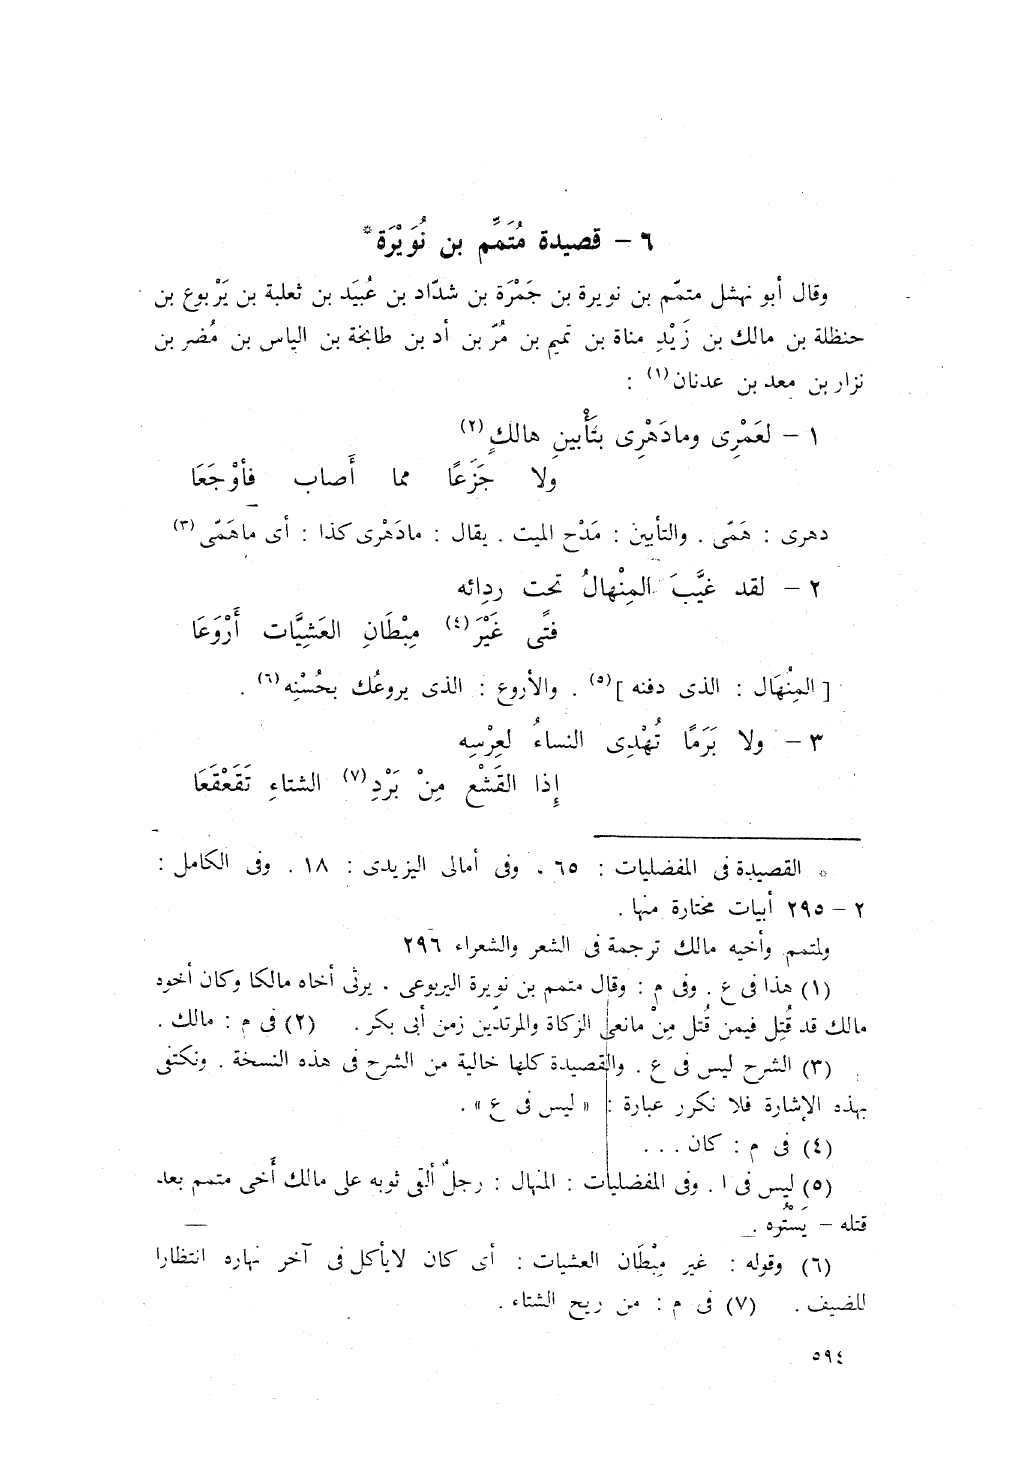 ٦ – قصيدة مُتَمِّم بن نُوَيْرَة*
وقال أبو نهشل متمّم بن نويرة بن جَمْرَة بن شدّاد بن عُبيَد بن ثعلبة بن يَرْبوع بن
حنظلة بن مالك بن زَيْدِ مناة بن تميم بن مُرّ بن أد بن طابخة بن الياس بن مُضر بن
نزار بن معد بن عدنان(١) :
١ – لعَمْرِى ومادَهْرِى بتَأْبينِ هالكٍ(٢)
ولا جَزَعًا مما أَصاب فأوْجَعَا
دهرى : هَمّى . والتأبين : مَدْح الميت . يقال : مادَهْرى كذا : أى ماهَمّى(٣)
٢ – لقد غيَّبَ المِنْهالُ تحت ردِائه
فتًى غَيْرَ(٤) مِبْطَانِ العَشِيَّات أَرْوَعَا
[ المِنُهَال : الذى دفنه ](٥) . والأروع : الذى يروعُك بحُسْنِه(٦) .
٣ – ولا بَرَمًا تُهْدِى النساءُ لعِرْسِه
إِذا القَشْع مِنْ بَرْدِ(٧) الشتاءِ تَقَعْقَعَا
* القصيدة فى المفضليات : ٦٥ . وفى أمالى اليزيدى : ١٨ . وفى الكامل :
٢ – ٢٩٥ أبيات مختارة منها .
ولمتمم وأخيه مالك ترجمة فى الشعر والشعراء ٢٩٦
(١) هذا فى ع . وفى م : وقال متمم بن نويرة اليربوعى . يرثى أخاه مالكا وكان أخوه
مالك قد قُتِل فيمن قُتل مِنْ مانعى الزكاة والمرتدّين زمن أبى بكر . (٢) فى م : مالك .
(٣) الشرح ليس فى ع . والقصيدة كلها خالية من الشرح فى هذه النسخة . ونكتفى
بهذه الإشارة فلا نكرر عبارة : « ليس فى ع » .
(٤) فى م : كان . . .
(٥) ليس فى ا . وفى المفضليات : المنهال : رجلٌ ألقى ثوبه على مالك أَخى متمم بعد
قتله – يَسْتُره .
(٦) وقوله : غير مِبْطَان العشيات : أى كان لايأكل فى آخر نهاره انتظارا
للضيف . (٧) فى م : من ريح الشتاء .
٥٩٤